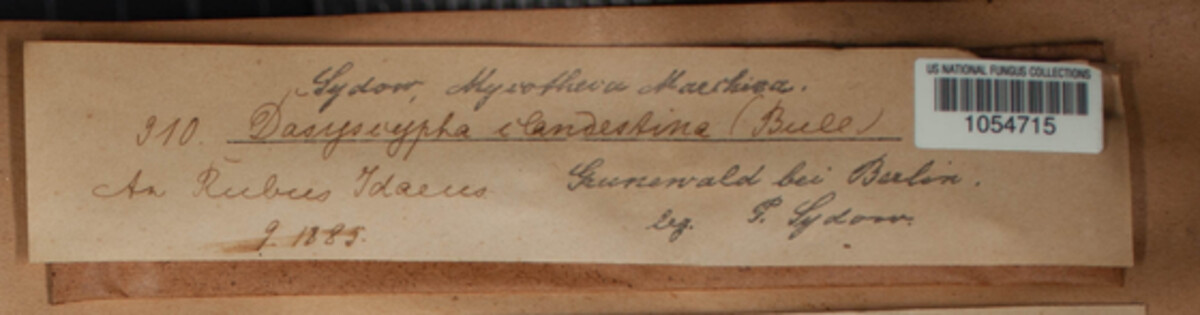 Sydow, Mycotheca Marchica.
910. Dasyscypha clandestina (Bull)
An Rubus Idaeus
Grunewald bei Berlin.
9. 1885.
leg. P. Sydow.
US NATIONAL FUNGUS COLLECTIONS
1054715